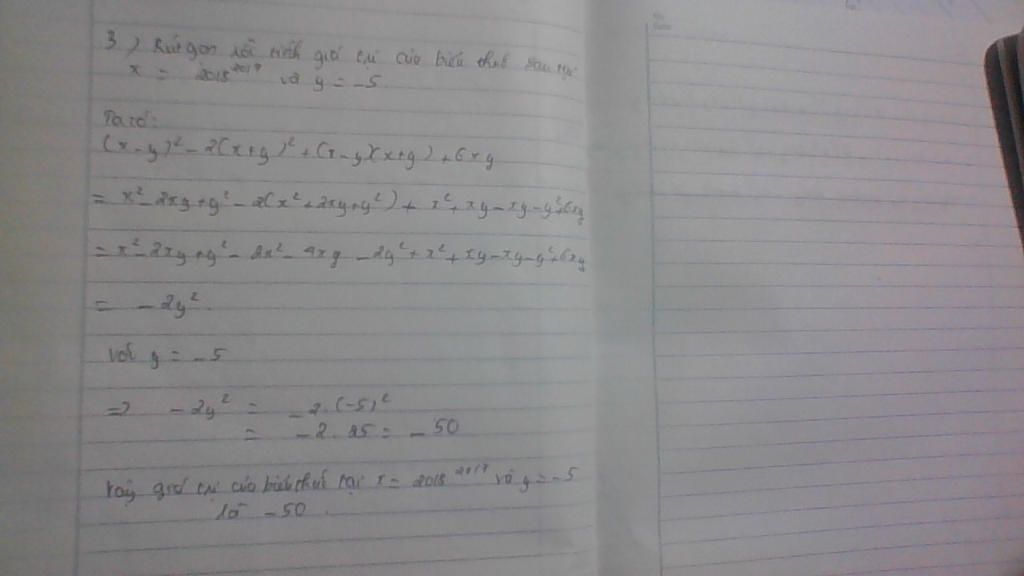 3) Rút gọn rồi tính giá trị của biểu thức sau tại
x = 2018²⁰¹⁷ và y = -5
Ta có:
(x-y)² - 2(x+y)² + (x-y)(x+y) + 6xy
= x² - 2xy + y² - 2(x² + 2xy + y²) + x² + xy - xy - y² + 6xy
= x² - 2xy + y² - 2x² - 4xy - 2y² + x² + xy - xy - y² + 6xy
= -2y².
với y = -5
=> -2y² = -2.(-5)²
= -2.25 = -50
Vậy giá trị của biểu thức tại x = 2018²⁰¹⁷ và y = -5
là -50.